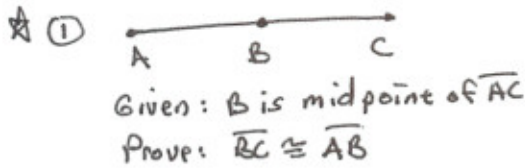 ☆ ①
A B C
Given: B is midpoint of A̅C̅
Prove: B̅C̅ ≅ A̅B̅